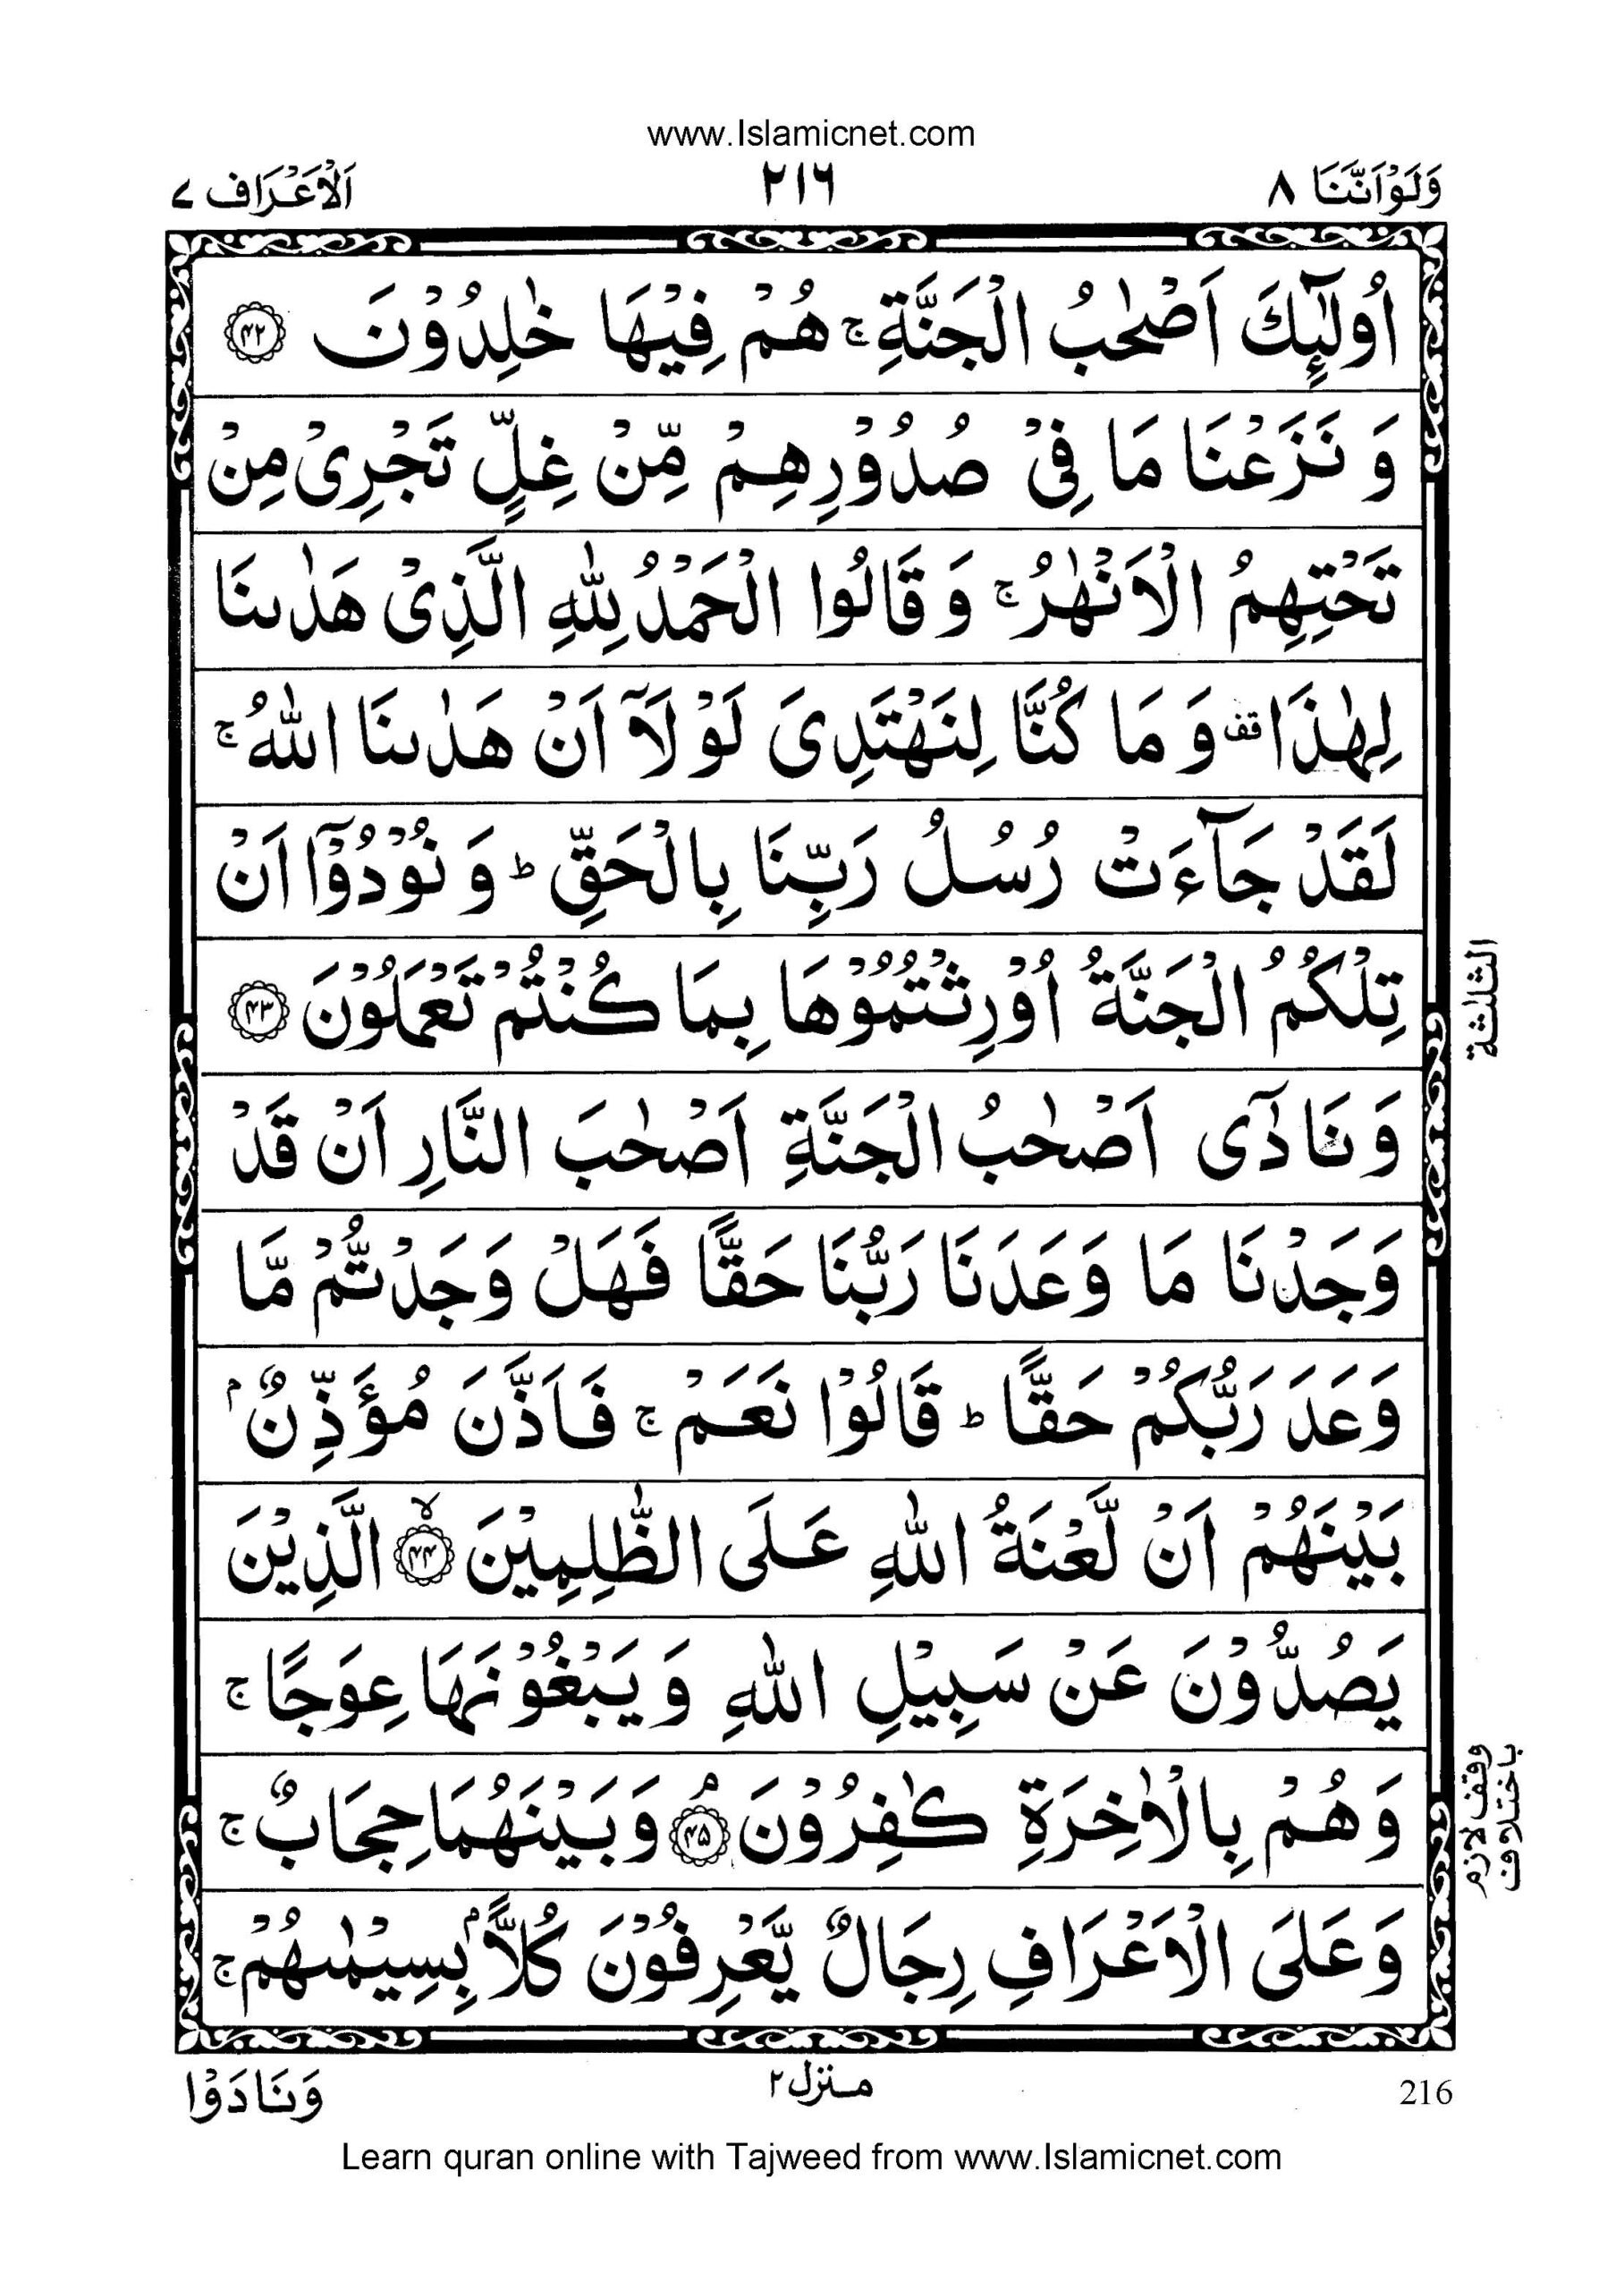 www.Islamicnet.com
وَلَوْاَنَّنَا ٨
٢١٦
اَلْاَعْرَاف ٧
اُولٰٓئِكَ اَصْحٰبُ الْجَنَّةِ ۚ هُمْ فِيْهَا خٰلِدُوْنَ ﴿۴۲﴾
وَ نَزَعْنَا مَا فِيْ صُدُوْرِهِمْ مِّنْ غِلٍّ تَجْرِيْ مِنْ
تَحْتِهِمُ الْاَنْهٰرُ ۚ وَ قَالُوا الْحَمْدُ لِلّٰهِ الَّذِيْ هَدٰىنَا
لِهٰذَا قف وَ مَا كُنَّا لِنَهْتَدِيَ لَوْ لَاۤ اَنْ هَدٰىنَا اللّٰهُ ۚ
لَقَدْ جَآءَتْ رُسُلُ رَبِّنَا بِالْحَقِّ ؕ وَ نُوْدُوْۤا اَنْ
تِلْكُمُ الْجَنَّةُ اُوْرِثْتُمُوْهَا بِمَا كُنْتُمْ تَعْمَلُوْنَ ﴿۴۳﴾
الثلثة
وَنَادٰۤى اَصْحٰبُ الْجَنَّةِ اَصْحٰبَ النَّارِ اَنْ قَدْ
وَجَدْنَا مَا وَعَدَنَا رَبُّنَا حَقًّا فَهَلْ وَجَدْتُّمْ مَّا
وَعَدَ رَبُّكُمْ حَقًّا ؕ قَالُوْا نَعَمْ ۚ فَاَذَّنَ مُؤَذِّنٌۢ
بَيْنَهُمْ اَنْ لَّعْنَةُ اللّٰهِ عَلَى الظّٰلِمِيْنَ ﴿۴۴﴾ۙ الَّذِيْنَ
يَصُدُّوْنَ عَنْ سَبِيْلِ اللّٰهِ وَ يَبْغُوْنَهَا عِوَجًا ۚ
وَهُمْ بِالْاٰخِرَةِ كٰفِرُوْنَ ﴿۴۵﴾ۘ وَبَيْنَهُمَا حِجَابٌ ۚ
وقف لازم
باختلاف
وَعَلَى الْاَعْرَافِ رِجَالٌ يَّعْرِفُوْنَ كُلًّاۢ بِسِيْمٰىهُمْ ۚ
216
منزل ٢
وَنَادَوْا
Learn quran online with Tajweed from www.Islamicnet.com